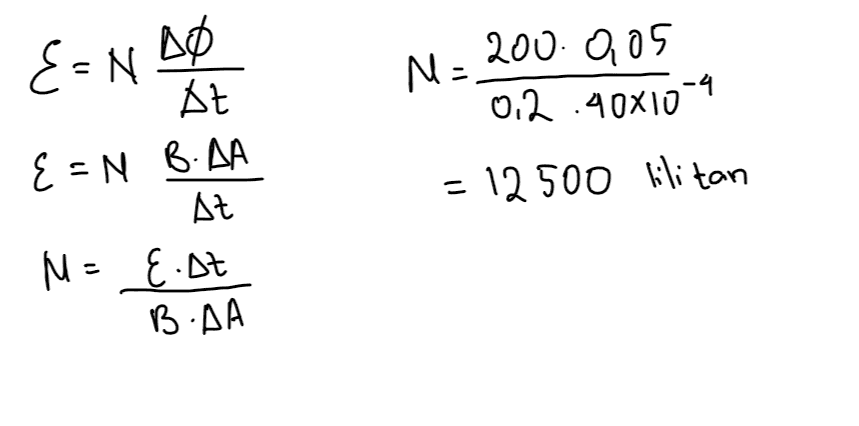 ε = N Δϕ / Δt
ε = N B · ΔA / Δt
N = ε · Δt / B · ΔA
N = 200 · 0,05 / 0,2 · 40×10⁻⁴
= 12500 lilitan